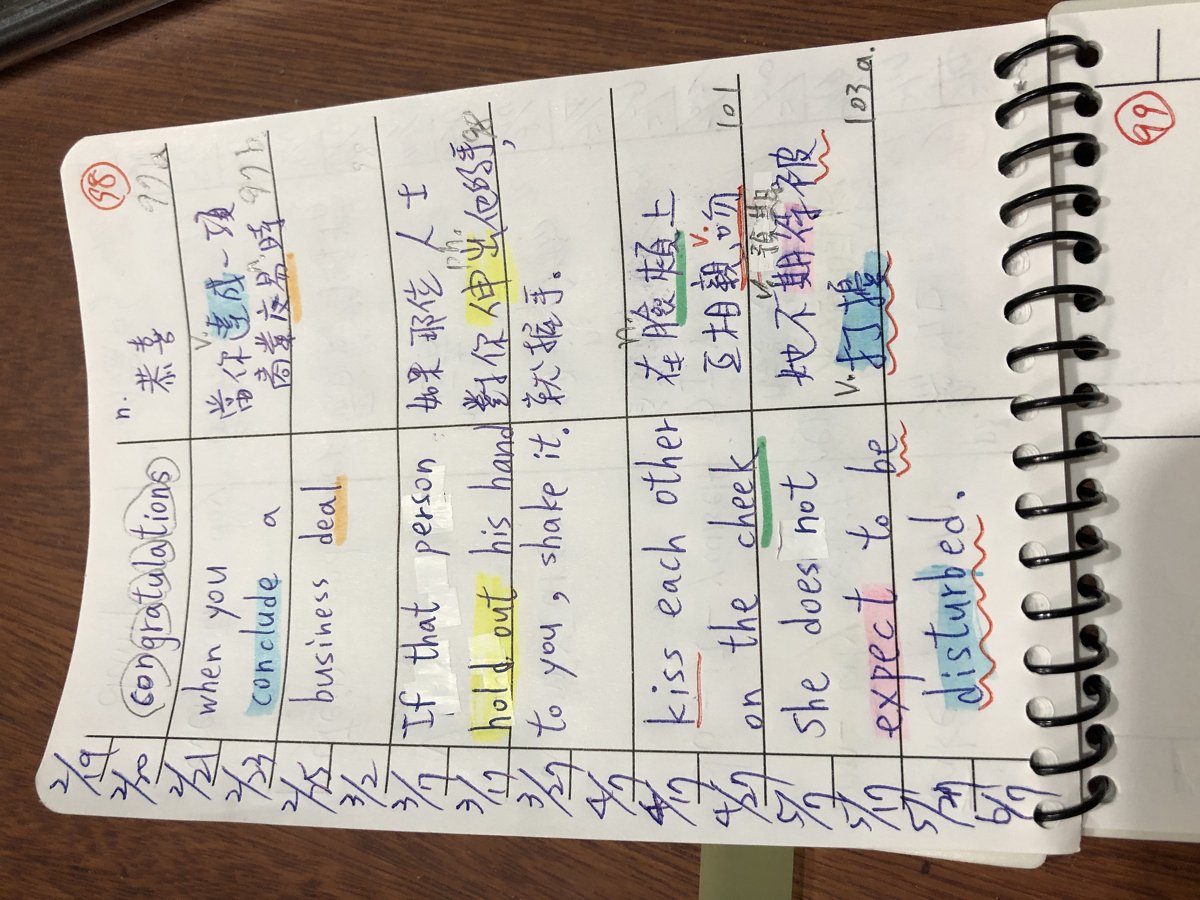 98
congratulations
n.
恭喜
97a
when you
conclude a
business deal
v.
當你達成一項
商業交易時
97b
If that person
hold out his hand
to you, shake it.
如果那位人士
ph.
對你伸出他的手,
98
就握手。
kiss each other
on the cheek
n.
在臉頰上
v.
互相親吻
101
She does not
expect to be
disturbed.
v. 預期
她不期待被
v. 打擾
103a.
2/19
2/20
2/21
2/23
2/25
3/2
3/7
3/17
3/27
4/7
4/17
4/27
5/7
5/17
5/27
6/7
99